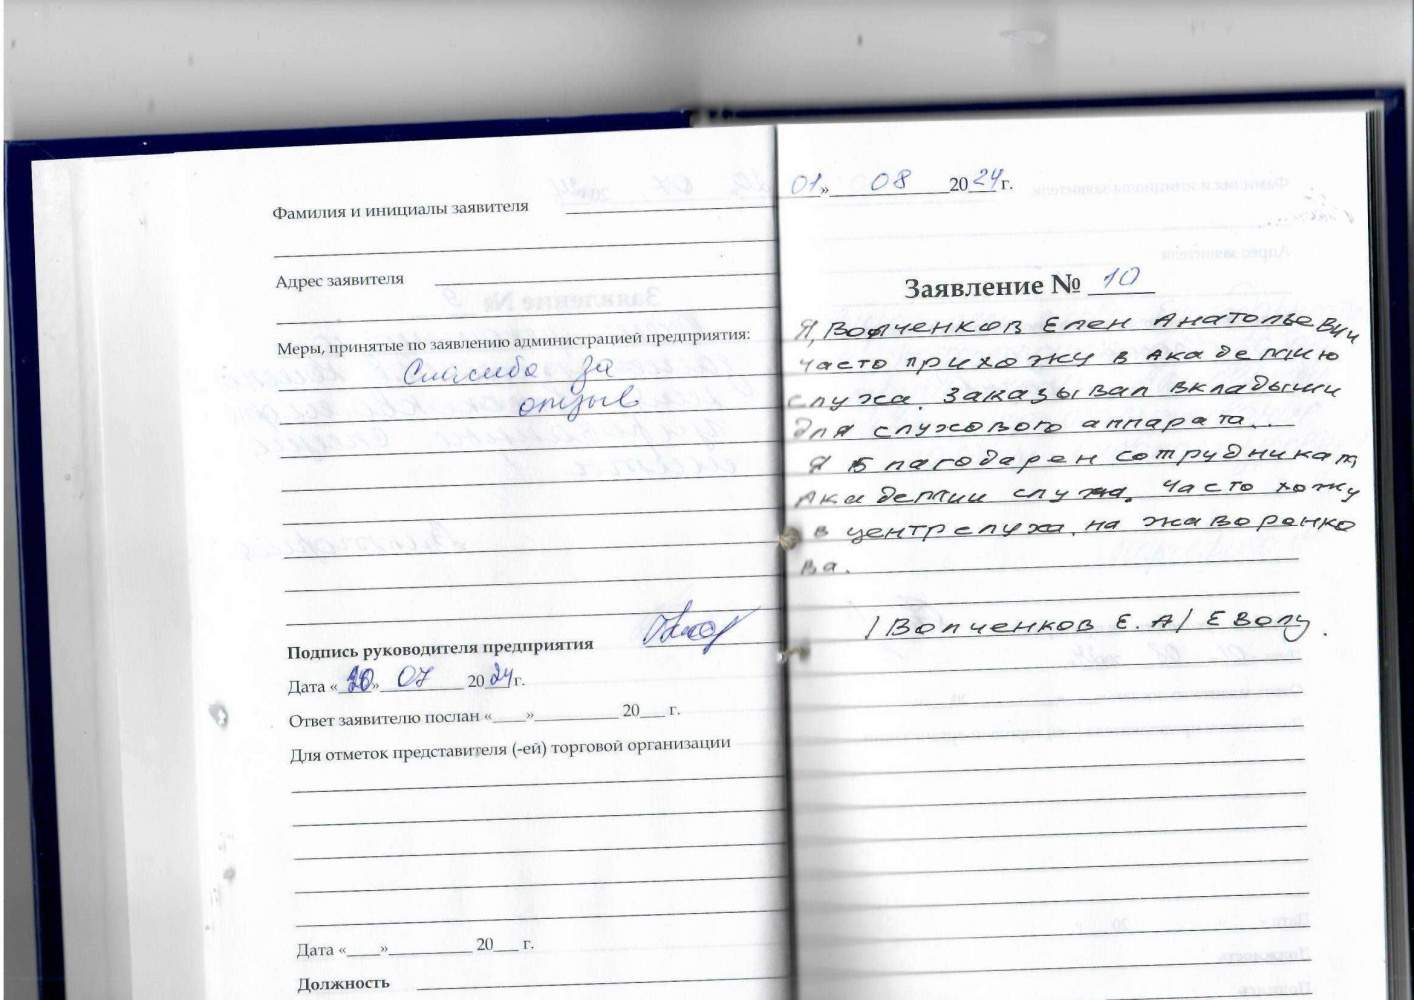 Фамилия и инициалы заявителя
Адрес заявителя
Меры, принятые по заявлению администрацией предприятия:
Спасибо за
отзыв
Подпись руководителя предприятия
Дата «30» 07 2024 г.
Ответ заявителю послан «___»__________ 20___ г.
Для отметок представителя (-ей) торговой организации
Дата «___»__________ 20___ г.
Должность
01» 08 2024 г.
Заявление № 10
Я, Волченков Елен Анатольевич
часто прихожу в Академию
слуха. Заказывал вкладыши
для слухового аппарата...
Я благодарен сотрудникам
Академии слуха. Часто хожу
в центр слуха. на жаворонко
ва.
/Волченков Е.А/ ЕВолч